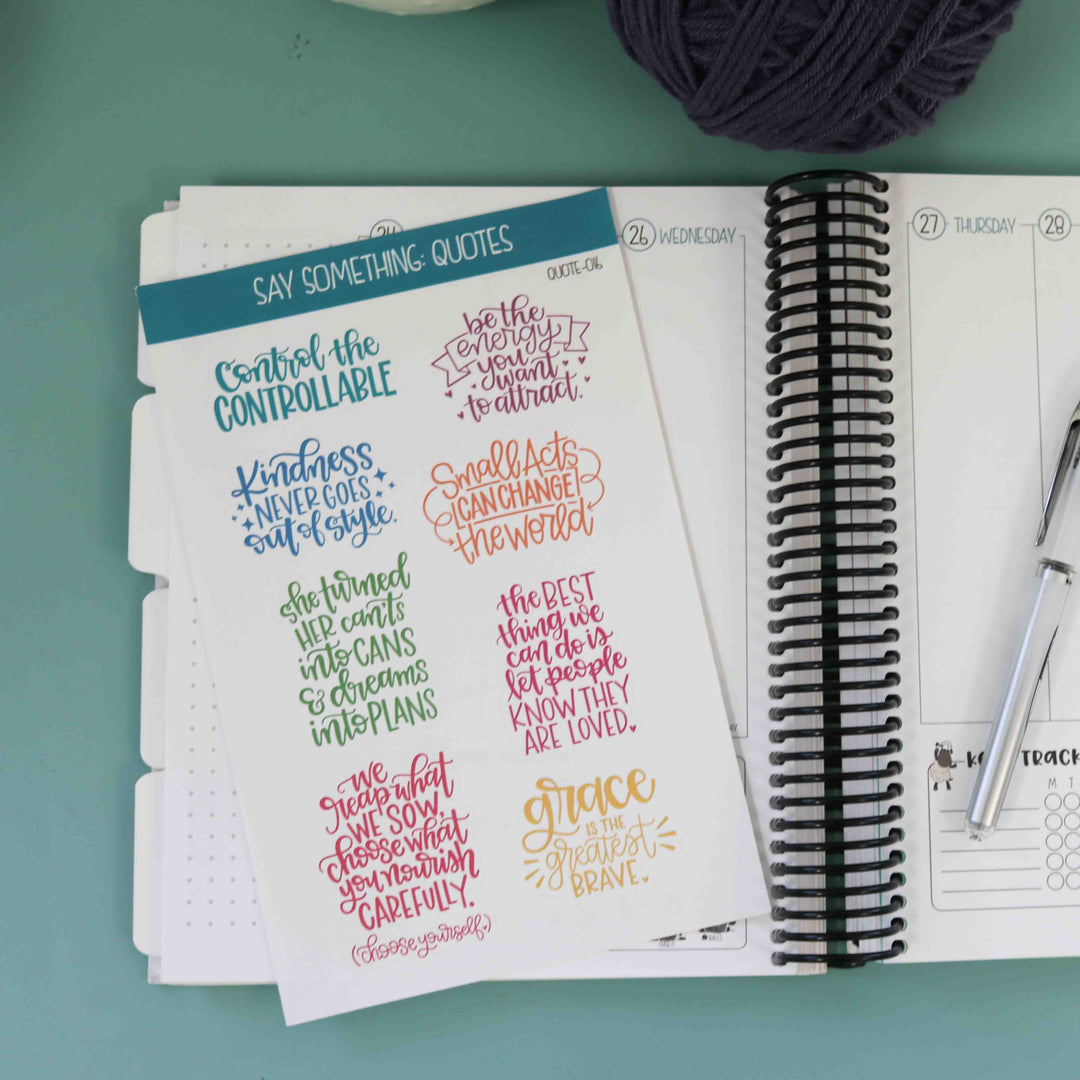 SAY SOMETHING: QUOTES
QUOTE-016
Control the
CONTROLLABLE
be the
energy
you
want
to attract.
Kindness
NEVER GOES
out of style.
Small Acts
CAN CHANGE
the world
she turned
HER can'ts
into CANS
& dreams
into PLANS
the BEST
thing we
can do is
let people
KNOW THEY
ARE LOVED.
we
reap what
WE SOW,
choose what
you nourish
CAREFULLY.
(choose yourself.)
grace
IS THE
greatest
BRAVE.
24
26 WEDNESDAY
27 THURSDAY
28
TRACK
M T
BALLS